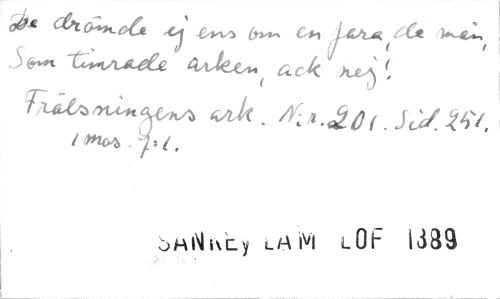 De drömde ej ens om en fara, de män,
Som timrade arken, ack nej!
Frälsningens ark. N:r. 201. Sid. 251.
1 mos. 7:1.
SANKEY LAM LOF 1889